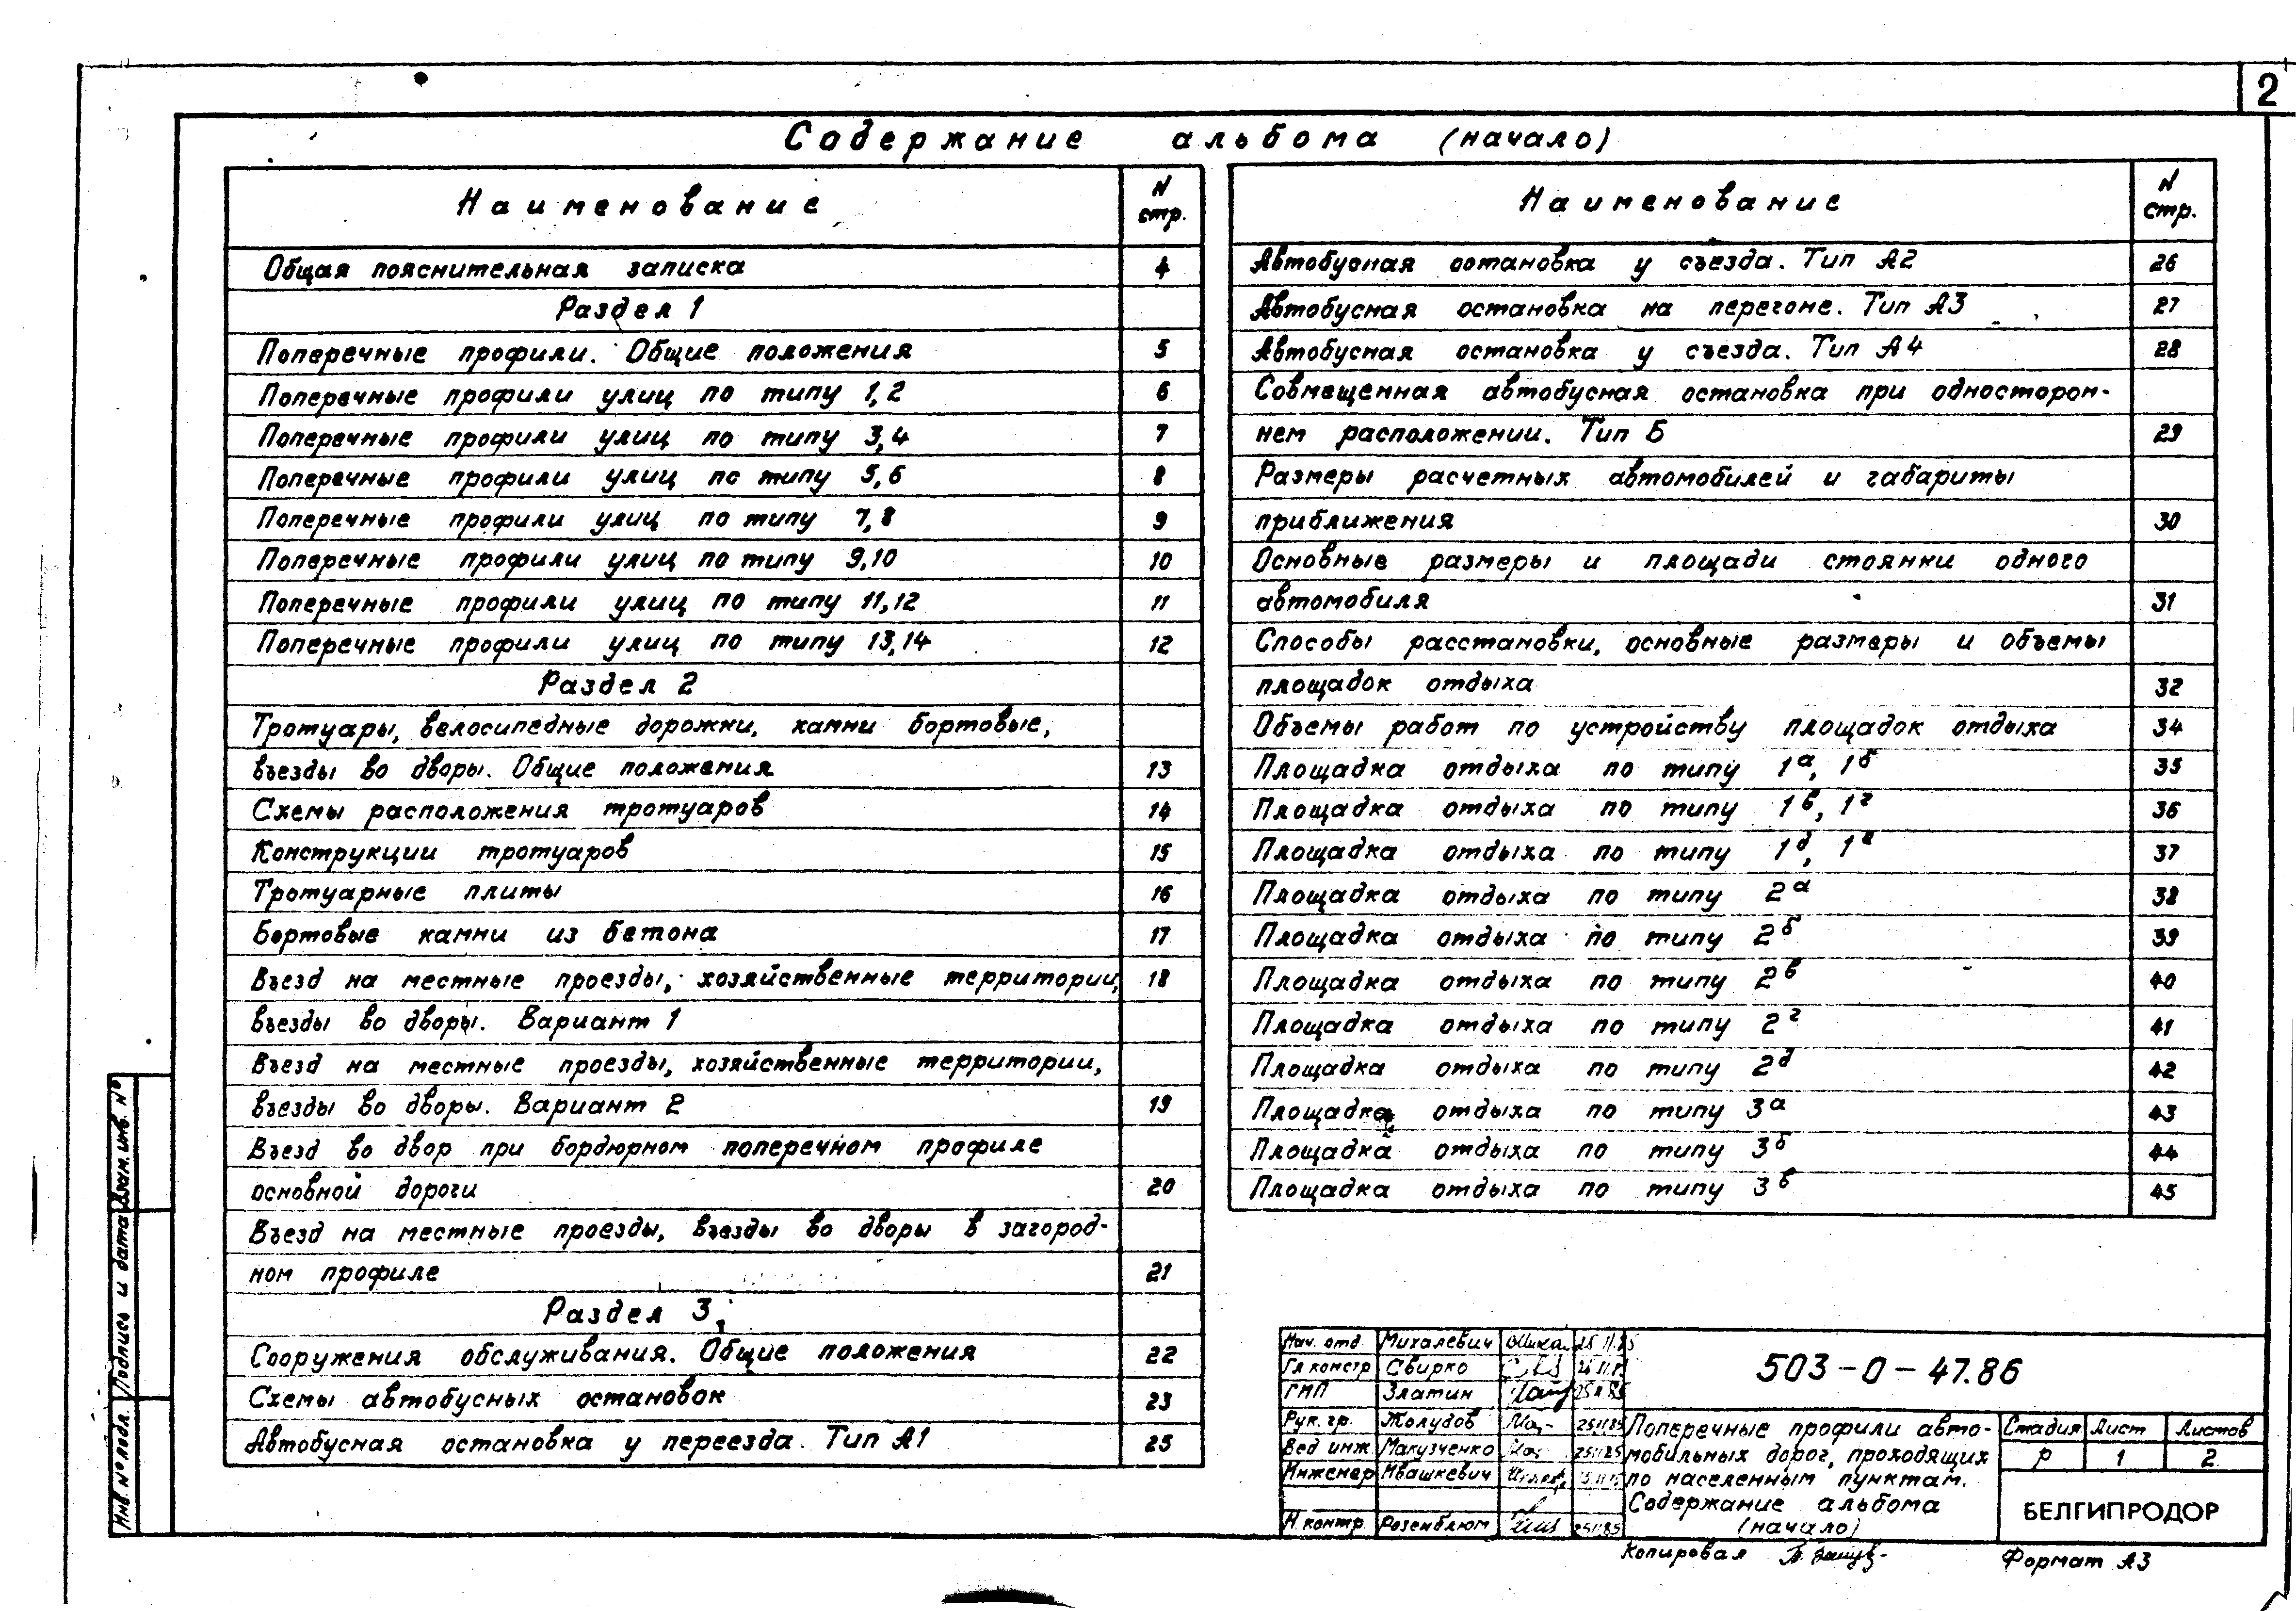 2
Содержание альбома (начало)
Наименование N стр.
Общая пояснительная записка 4
Раздел 1
Поперечные профили. Общие положения 5
Поперечные профили улиц по типу 1,2 6
Поперечные профили улиц по типу 3,4 7
Поперечные профили улиц по типу 5,6 8
Поперечные профили улиц по типу 7,8 9
Поперечные профили улиц по типу 9,10 10
Поперечные профили улиц по типу 11,12 11
Поперечные профили улиц по типу 13,14 12
Раздел 2
Тротуары, велосипедные дорожки, камни бортовые,
въезды во дворы. Общие положения 13
Схемы расположения тротуаров 14
Конструкции тротуаров 15
Тротуарные плиты 16
Бортовые камни из бетона 17
Въезд на местные проезды, хозяйственные территории, 18
въезды во дворы. Вариант 1
Въезд на местные проезды, хозяйственные территории,
въезды во дворы. Вариант 2 19
Въезд во двор при бордюрном поперечном профиле
основной дороги 20
Въезд на местные проезды, въезды во дворы в загород-
ном профиле 21
Раздел 3
Сооружения обслуживания. Общие положения 22
Схемы автобусных остановок 23
Автобусная остановка у переезда. Тип А1 25
Наименование N стр.
Автобусная остановка у съезда. Тип А2 26
Автобусная остановка на перегоне. Тип А3 27
Автобусная остановка у съезда. Тип А4 28
Совмещенная автобусная остановка при односторон-
нем расположении. Тип Б 29
Размеры расчетных автомобилей и габариты
приближения 30
Основные размеры и площади стоянки одного
автомобиля 31
Способы расстановки, основные размеры и объемы
площадок отдыха 32
Объемы работ по устройству площадок отдыха 34
Площадка отдыха по типу 1а, 1б 35
Площадка отдыха по типу 1в, 1г 36
Площадка отдыха по типу 1д, 1е 37
Площадка отдыха по типу 2а 38
Площадка отдыха по типу 2б 39
Площадка отдыха по типу 2в 40
Площадка отдыха по типу 2г 41
Площадка отдыха по типу 2д 42
Площадка отдыха по типу 3а 43
Площадка отдыха по типу 3б 44
Площадка отдыха по типу 3в 45
Нач. отд. Михалевич 25.11.85
Гл констр Свирко
ГИП Златин 25.11.85
Рук. гр. Жолудов 25.11.85
Вед инж Макузченко 25.11.85
Инженер Ивашкевич
Н.контр. Розенблюм 25.11.85
503-0-47.86
Поперечные профили авто-
мобильных дорог, проходящих
по населенным пунктам.
Содержание альбома
(начало)
Стадия Лист Листов
Р 1 2
БЕЛГИПРОДОР
Копировал
Формат А3
Инв. № подл. Подпись и дата Взам. инв. №